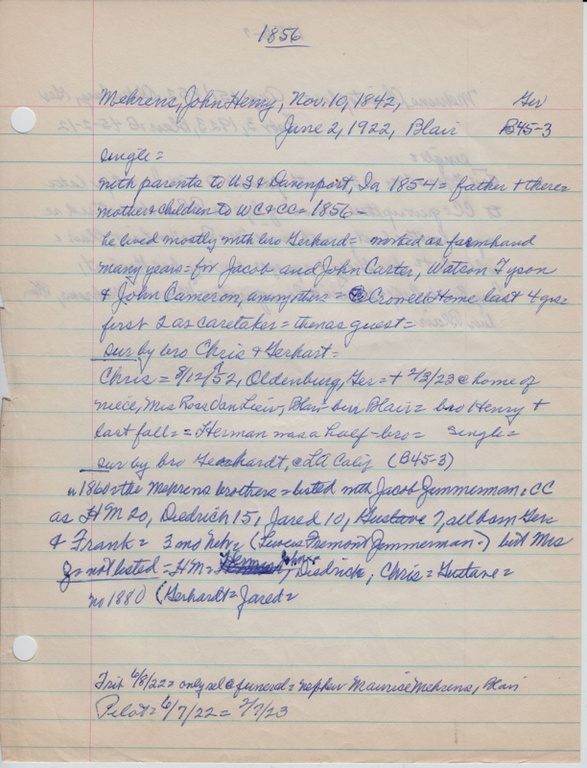 1856
Mehrens, John Henry, Nov. 10, 1842, Ger
June 2, 1922, Blair B45-3
single =
with parents to US & Davenport, Ia 1854 = father + there =
mother & children to WC & CC = 1856 -
he lived mostly with bro Gerhard = worked as farmhand
many years = for Jacob and John Carter, Watson Tyson
& John Cameron, among others = Crowell Home last 4 yrs =
first 2 as caretaker = then as guest =
sur by bro Chris & Gerhart =
Chris = 8/12/52, Oldenburg, Ger = + 2/3/23 @ home of
niece, Mrs Ross Van Liew, Blair bur Blair = bro Henry +
last fall = = Herman was a half-bro = single =
sur by bro Gerhardt, @ LA Calif (B45-3)
1860 = the Mehrens brothers = listed with Jacob Zimmerman, CC
as H M 20, Diedrich 15, Jared 10, Gustave 7, all born Ger
& Frank = 3 mo Neb = (Fremont Zimmerman) but Mrs
Z = not listed = HM = , Diedrick, Chris = Gustave =
no 1880 (Gerhardt = Jared =
Trib 6/8/22 = only rel @ funeral = nephew Maurice Mehrens, Blair
Pilot = 6/7/22 = 2/7/23